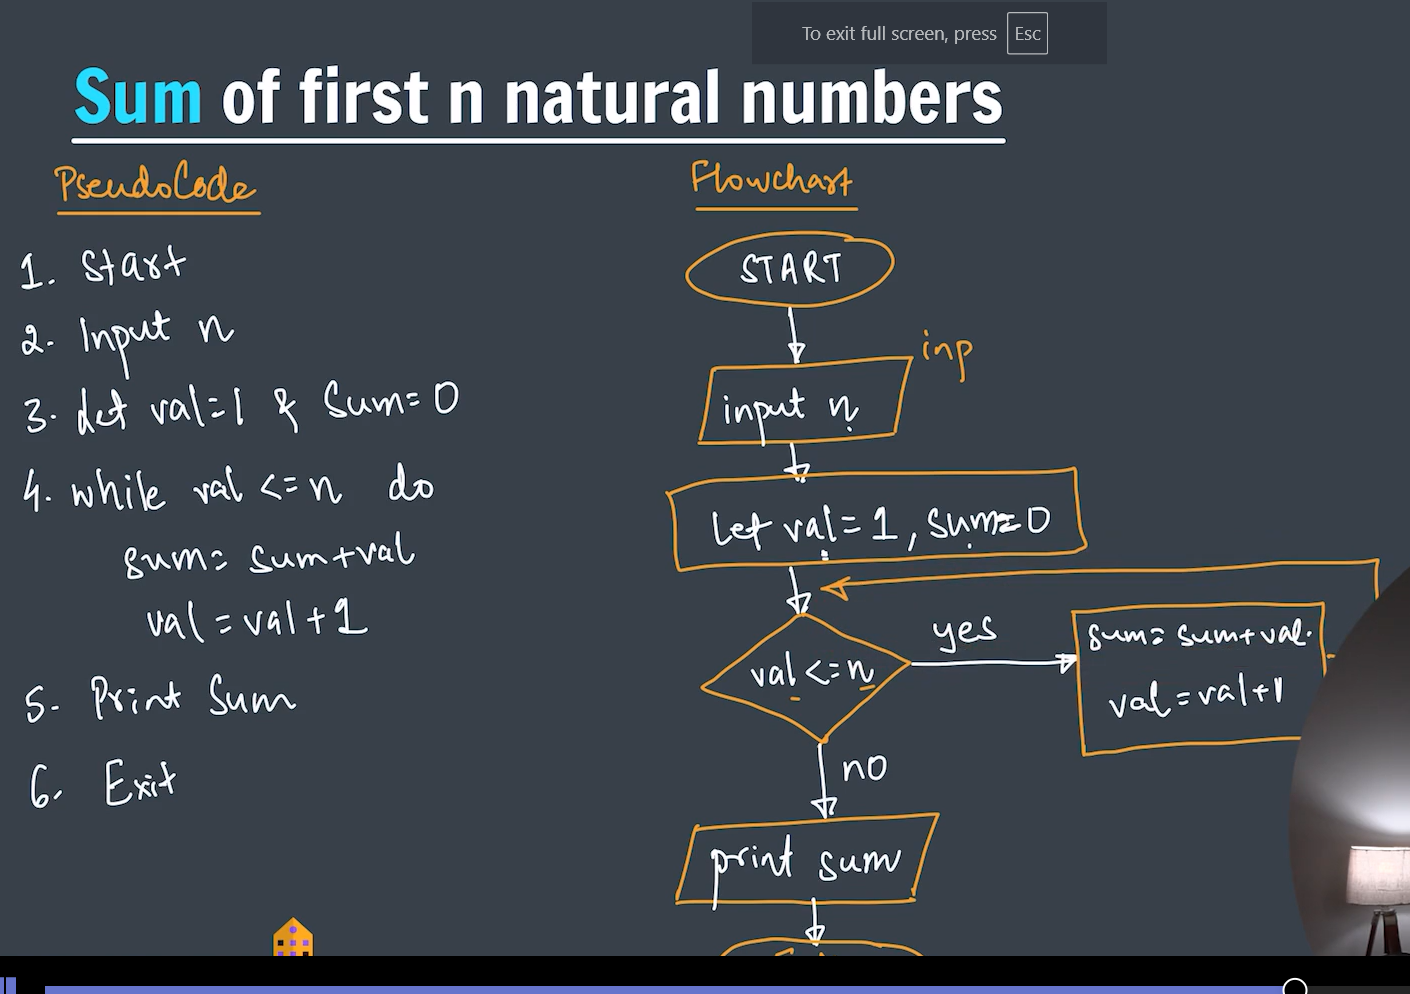 To exit full screen, press Esc
Sum of first n natural numbers
PseudoCode
1. Start
2. Input n
3. Let val=1 & Sum=0
4. while val <=n do
sum= sum+val
val=val+1
5. Print Sum
6. Exit
Flowchart
START
inp
input n
Let val=1, sum=0
val <=n
yes
sum= sum+val.
val=val+1
no
print sum